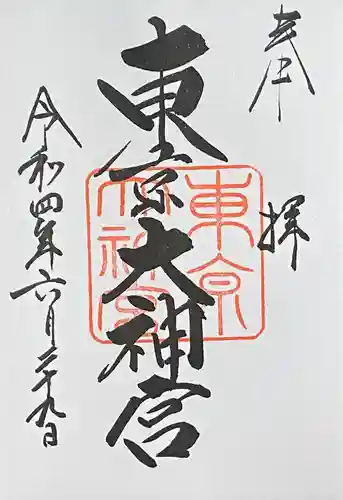 奉拝
東京大神宮
東京大神宮
令和四年六月二十九日